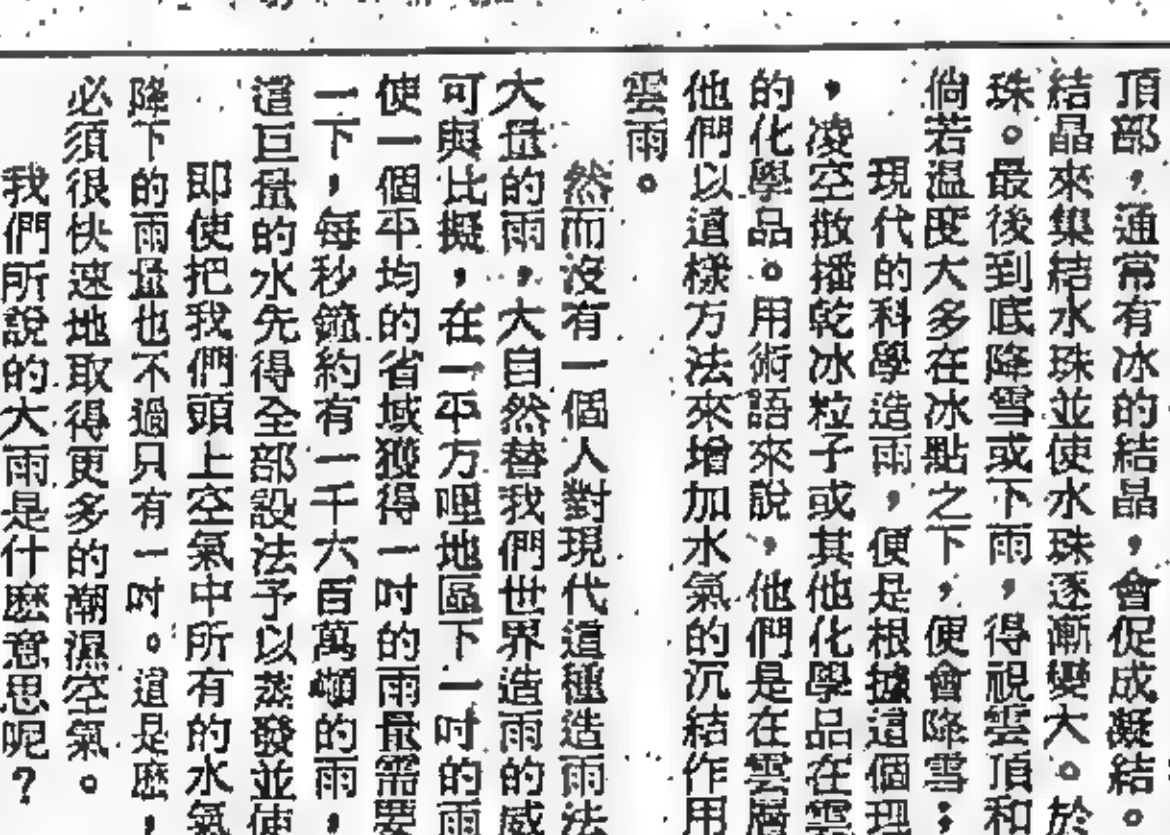 頂部，通常有冰的結晶，會促成凝結。
結晶來集結水珠並使水珠逐漸變大。於
珠。最後到底降雪或下雨，得視雲頂和
倘若溫度大多在冰點之下，便會降雪；
現代的科學造雨，便是根據這個理
，凌空散播乾冰粒子或其他化學品在雲
的化學品。用術語來說，他們是在雲層
他們以這樣方法來增加水氣的沉結作用
雲雨。
然而沒有一個人對現代這種造雨法
大量的雨，大自然替我們世界造雨的威
可與比擬，在一平方哩地區下一吋的雨
使一個平均的省域獲得一吋的雨量需要
一下，每秒鐘約有一千六百萬噸的雨，
這巨量的水先得全部設法予以蒸發並使
即使把我們頭上空氣中所有的水氣
降下的雨量也不過只有一吋。這是麽，
必須很快速地取得更多的潮濕空氣。
我們所說的大雨是什麽意思呢？